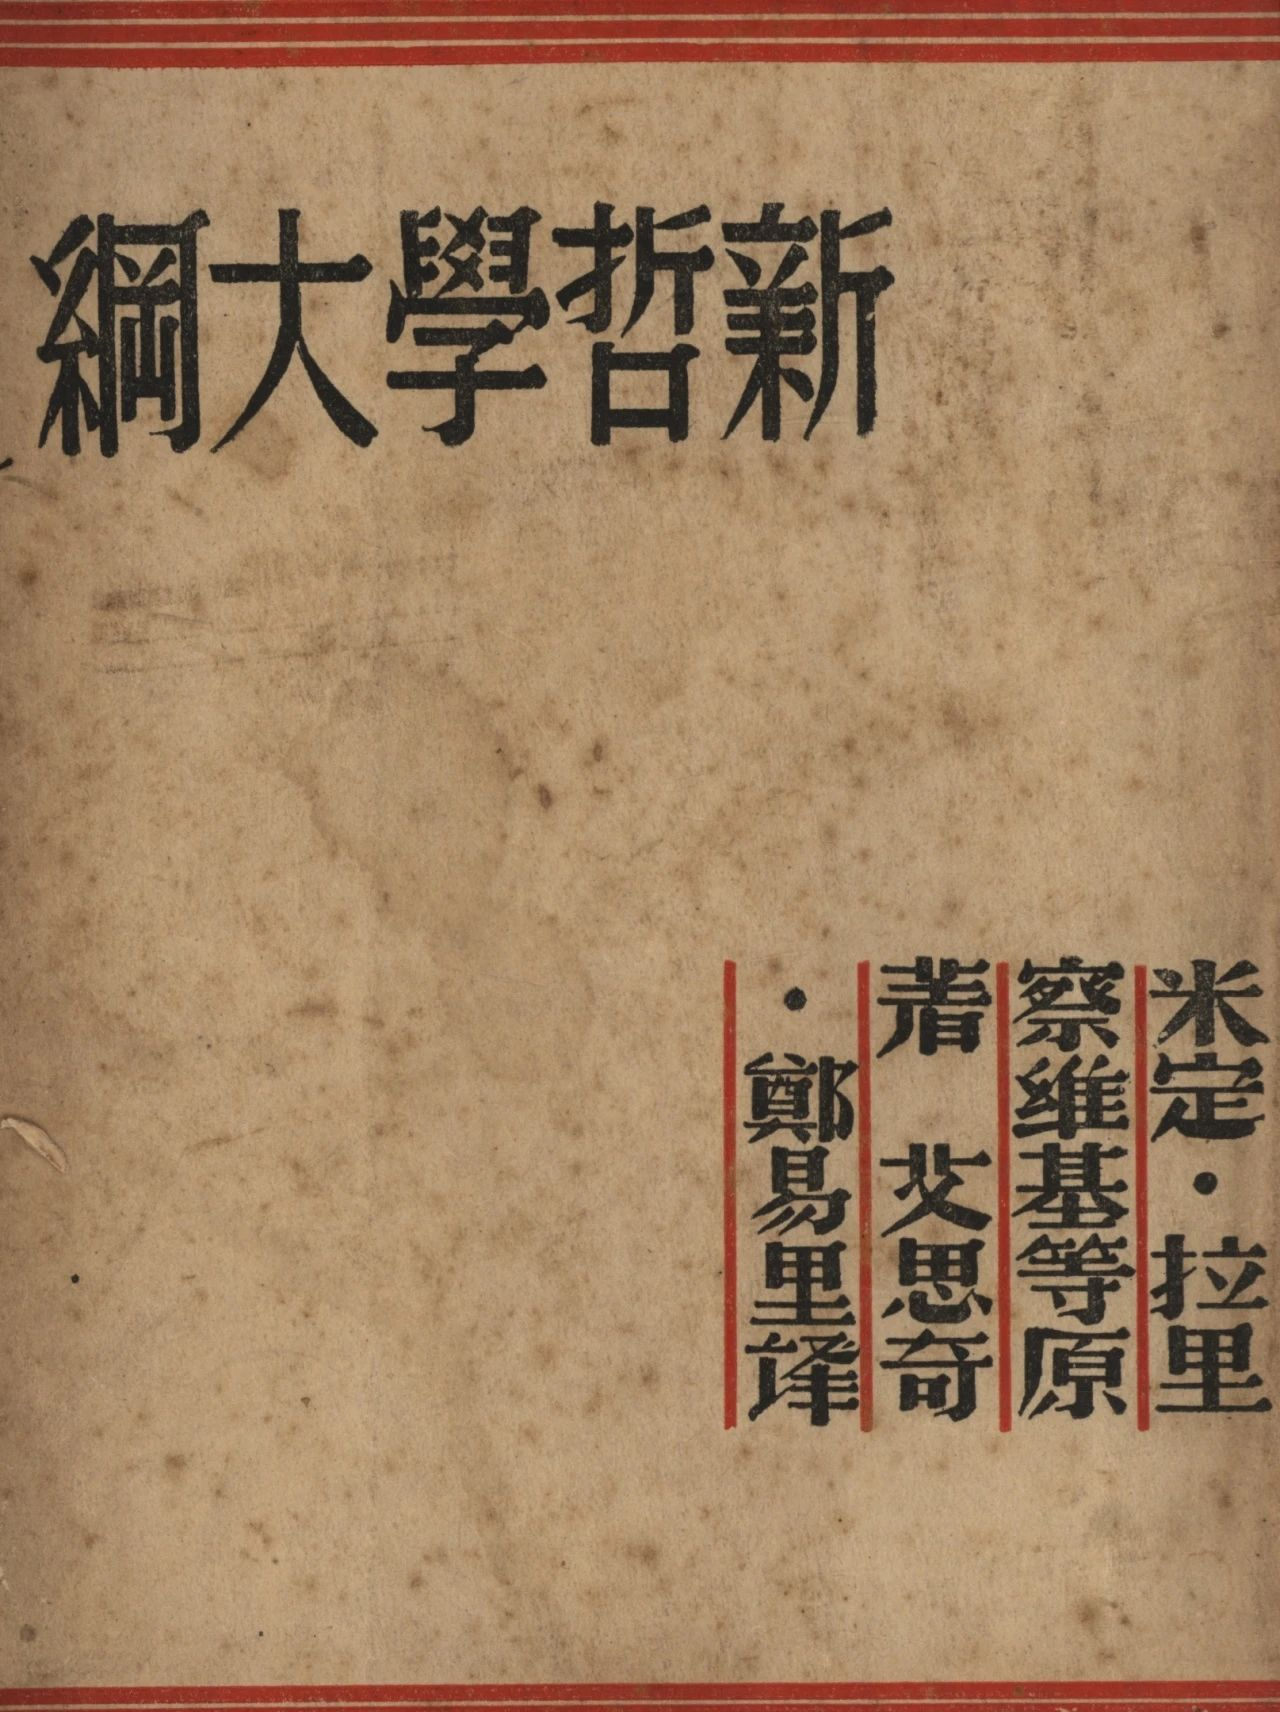 新哲學大綱
米定·拉里
察維基等原
著 艾思奇
·鄭易里譯